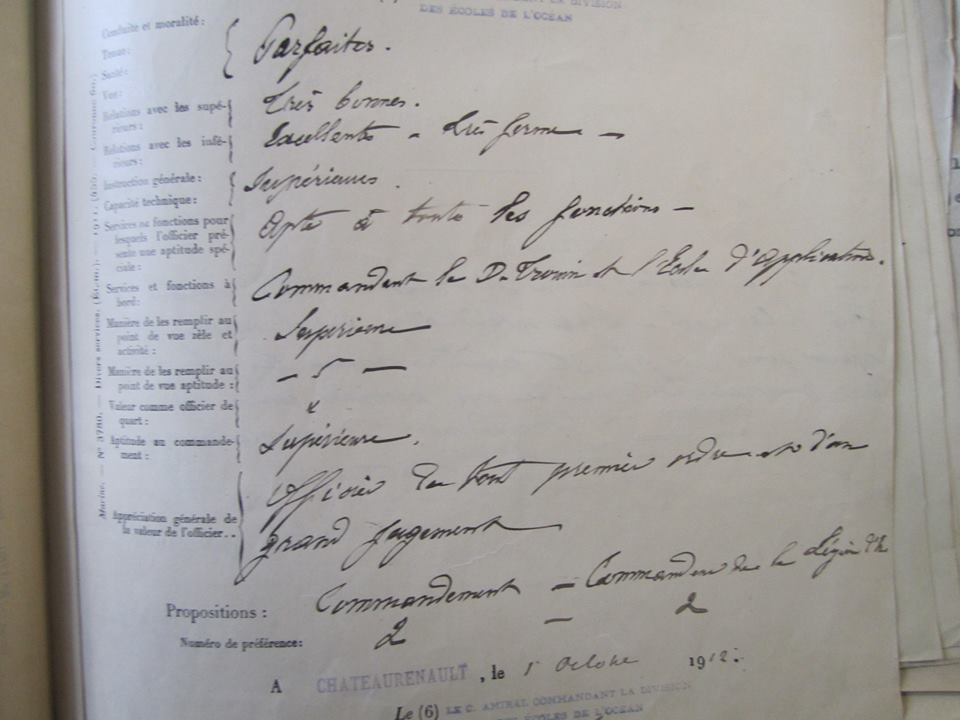 COMMANDANT LA DIVISION
DES ÉCOLES DE L'OCÉAN
Conduite et moralité:
Tenue:
Santé:
Vue:
Parfaites.
Relations avec les supérieurs:
Très bonnes.
Relations avec les inférieurs:
Excellentes - très ferme -
Instruction générale:
Capacité technique:
Supérieures.
Services ou fonctions pour
lesquels l'officier présente
une aptitude spéciale:
Apte à toutes les fonctions -
Services et fonctions à
bord:
Commandant le D. Trouin et l'Ecole d'Application.
Manière de les remplir au
point de vue zèle et
activité:
Supérieure
Manière de les remplir au
point de vue aptitude:
Valeur comme officier de
quart:
Aptitude au commandement:
Supérieure.
Appréciation générale de
la valeur de l'officier..
Officier du tout premier ordre et d'un
grand jugement
Propositions:
Commandement - Commandeur de la Légion d'h
Numéro de préférence:
2 - 2
A CHATEAURENAULT, le 1 Octobre 1912.
Le (6) LE C. AMIRAL COMMANDANT LA DIVISION
DES ÉCOLES DE L'OCÉAN
Marine. — N° 3780. — Divers services.